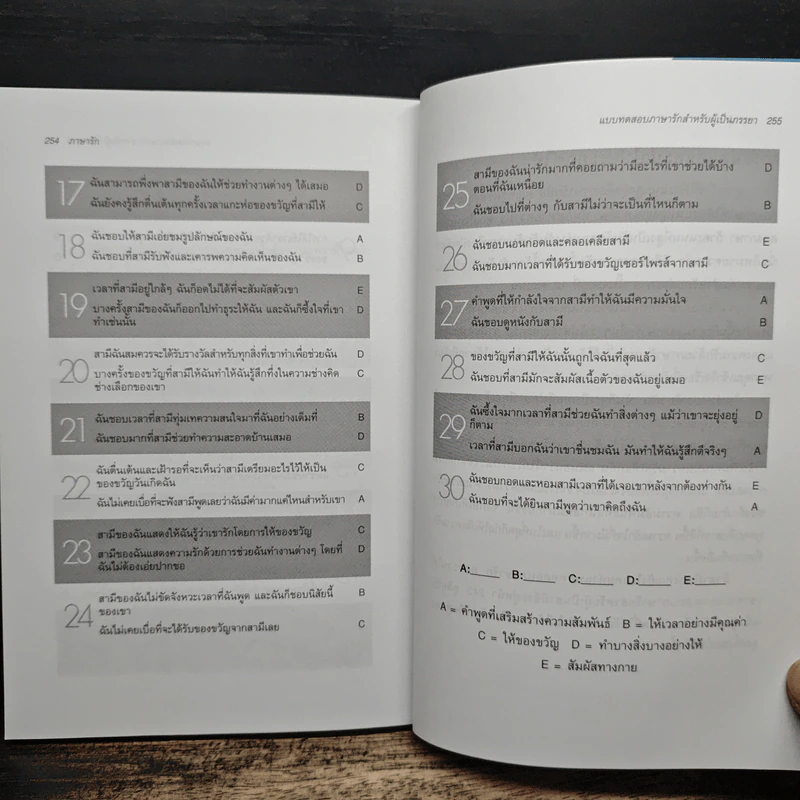 254 ภาษารัก
17 ฉันสามารถพึ่งพาสามีของฉันให้ช่วยทำงานต่างๆ ได้เสมอ D
ฉันยังคงรู้สึกตื่นเต้นทุกครั้งเวลาแกะห่อของขวัญที่สามีให้ C
18 ฉันชอบให้สามีเอ่ยชมรูปลักษณ์ของฉัน A
ฉันชอบที่สามีรับฟังและเคารพความคิดเห็นของฉัน B
19 เวลาที่สามีอยู่ใกล้ๆ ฉันก็อดไม่ได้ที่จะสัมผัสตัวเขา E
บางครั้งสามีของฉันก็ออกไปทำธุระให้ฉัน และฉันก็ซึ้งใจที่เขา D
ทำเช่นนั้น
20 สามีฉันสมควรจะได้รับรางวัลสำหรับทุกสิ่งที่เขาทำเพื่อช่วยฉัน D
บางครั้งของขวัญที่สามีให้ฉันทำให้ฉันรู้สึกทึ่งในความช่างคิด C
ช่างเลือกของเขา
21 ฉันชอบเวลาที่สามีทุ่มเทความสนใจมาที่ฉันอย่างเต็มที่ B
ฉันชอบมากที่สามีช่วยทำความสะอาดบ้านเสมอ D
22 ฉันตื่นเต้นและเฝ้ารอที่จะเห็นว่าสามีเตรียมอะไรไว้ให้เป็น C
ของขวัญวันเกิดฉัน
ฉันไม่เคยเบื่อที่จะฟังสามีพูดเลยว่าฉันมีค่ามากแค่ไหนสำหรับเขา A
23 สามีของฉันแสดงให้ฉันรู้ว่าเขารักโดยการให้ของขวัญ C
สามีของฉันแสดงความรักด้วยการช่วยฉันทำงานต่างๆ โดยที่ D
ฉันไม่ต้องเอ่ยปากขอ
24 สามีของฉันไม่ขัดจังหวะเวลาที่ฉันพูด และฉันก็ชอบนิสัยนี้ B
ของเขา
ฉันไม่เคยเบื่อที่จะได้รับของขวัญจากสามีเลย C
แบบทดสอบภาษารักสำหรับผู้เป็นภรรยา 255
25 สามีของฉันน่ารักมากที่คอยถามว่ามีอะไรที่เขาช่วยได้บ้าง D
ตอนที่ฉันเหนื่อย
ฉันชอบไปที่ต่างๆ กับสามีไม่ว่าจะเป็นที่ไหนก็ตาม B
26 ฉันชอบนอนกอดและคลอเคลียสามี E
ฉันชอบมากเวลาที่ได้รับของขวัญเซอร์ไพรส์จากสามี C
27 คำพูดที่ให้กำลังใจจากสามีทำให้ฉันมีความมั่นใจ A
ฉันชอบดูหนังกับสามี B
28 ของขวัญที่สามีให้ฉันนั้นถูกใจฉันที่สุดแล้ว C
ฉันชอบที่สามีมักจะสัมผัสเนื้อตัวของฉันอยู่เสมอ E
29 ฉันซึ้งใจมากเวลาที่สามีช่วยฉันทำสิ่งต่างๆ แม้ว่าเขาจะยุ่งอยู่ D
ก็ตาม
เวลาที่สามีบอกฉันว่าเขาชื่นชมฉัน มันทำให้ฉันรู้สึกดีจริงๆ A
30 ฉันชอบกอดและหอมสามีเวลาที่ได้เจอเขาหลังจากต้องห่างกัน E
ฉันชอบที่จะได้ยินสามีพูดว่าเขาคิดถึงฉัน A
A:_____ B:_____ C:_____ D:_____ E:_____
A = คำพูดที่เสริมสร้างความสัมพันธ์ B = ให้เวลาอย่างมีคุณค่า
C = ให้ของขวัญ D = ทำบางสิ่งบางอย่างให้
E = สัมผัสทางกาย